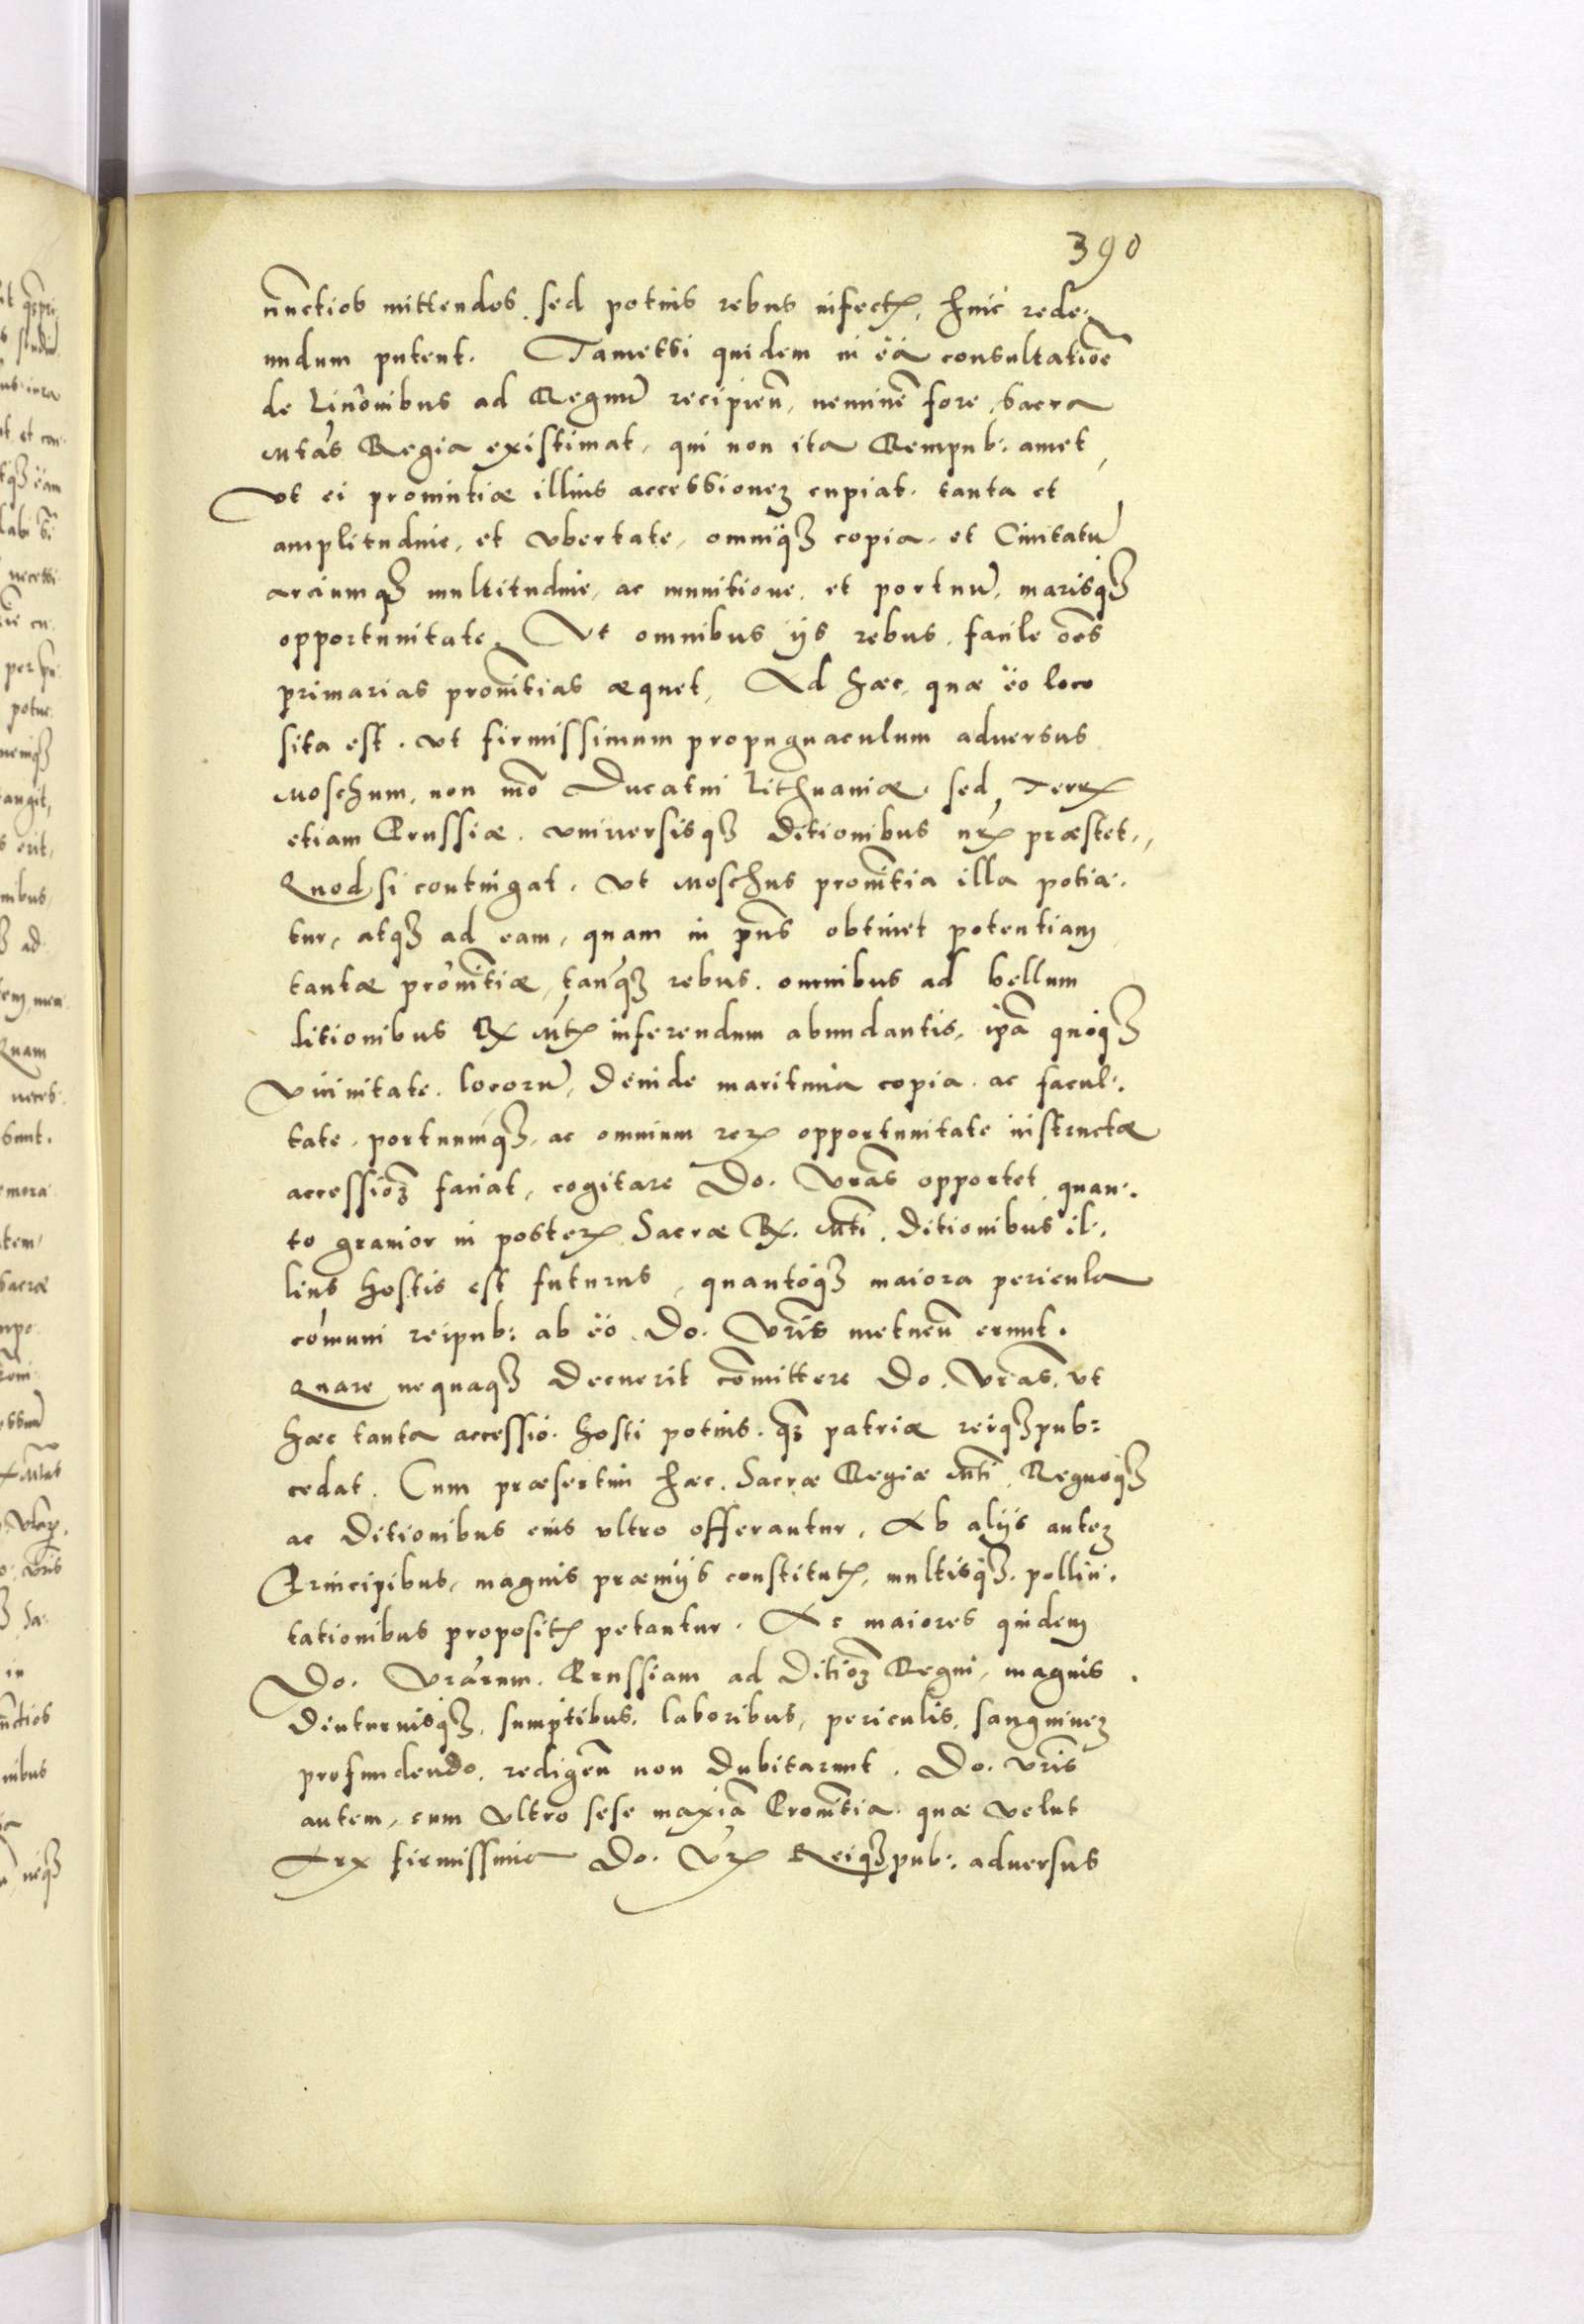 390
nūctios mittendos, sed potius rebus infectꝭ, huic rede-
undum putent. Tametsi quidem in ea consultatiōe
de Liuōnibus ad Regnū recipieñ, neminē fore, Sacra
Mtas Regia existimat, qui non ita Rempub: amet,
Vt ei prouintiæ illius accessionem cupiat, tanta et
amplitudine, et vbertate, omniqȝ copia, et Ciuitatū
arciumqȝ multitudine, ac munitione, et portuū, marisqȝ
opportunitate, Vt omnibus ijs rebus, facile oēs
primarias prouītias æquet, Ad hæc, quæ eo loco
sita est, vt firmissimum propugnaculum aduersus
Moschum, non mō Ducatui Lithuaniæ, sed, Terrꝭ
etiam Prussiæ, vniuersisqȝ ditionibus nrꝭ præstet,
Quod si contingat, vt Moschus prouītia illa potia-
tur, atqȝ ad eam, quam in pñs obtinet potentiam
tantæ prouītiæ, tanqȝ rebus omnibus ad bellum
ditionibus Rꝭ Mtꝭ inferendum abundantis, ipā quoqȝ
vicinitate locorū, deinde maritima copia, ac facul-
tate, portuumqȝ, ac omnium rerꝭ opportunitate instructæ
accessioȝ faciat, cogitare Do. Vrās opportet, quan-
to grauior in posterꝭ Sacræ Rꝭ. Mti. ditionibus il-
lius hostis est futurus, quantoqȝ maiora pericula
comuni reipub: ab eo Do. Vris metueñ erunt.
Quare nequaqȝ decuerit cōmittere Do. Vras, vt
hæc tanta accessio hosti potius, qȝ patriæ reiqȝpub:
cedat. Cum præsertim hæc, Sacræ Regiæ Mti, Regnoqȝ
ac ditionibus eius vltro offerantur, Ab alijs autem
Principibus, magnis præmijs constitutꝭ, multisqȝ pollici-
tationibus propositꝭ petantur. Ac maiores quidem
Do. Vrārum, Prussiam ad ditioȝ Regni, magnis
diuturnisqȝ, sumptibus, laboribus, periculis, sanguinem
profundendo, redigeñ non dubitarunt. Do. Vris
autem, cum vltro sese maxiā Prouītia, quæ velut
Arx firmissima Do. Vrꝭ Reiqȝpub: aduersus